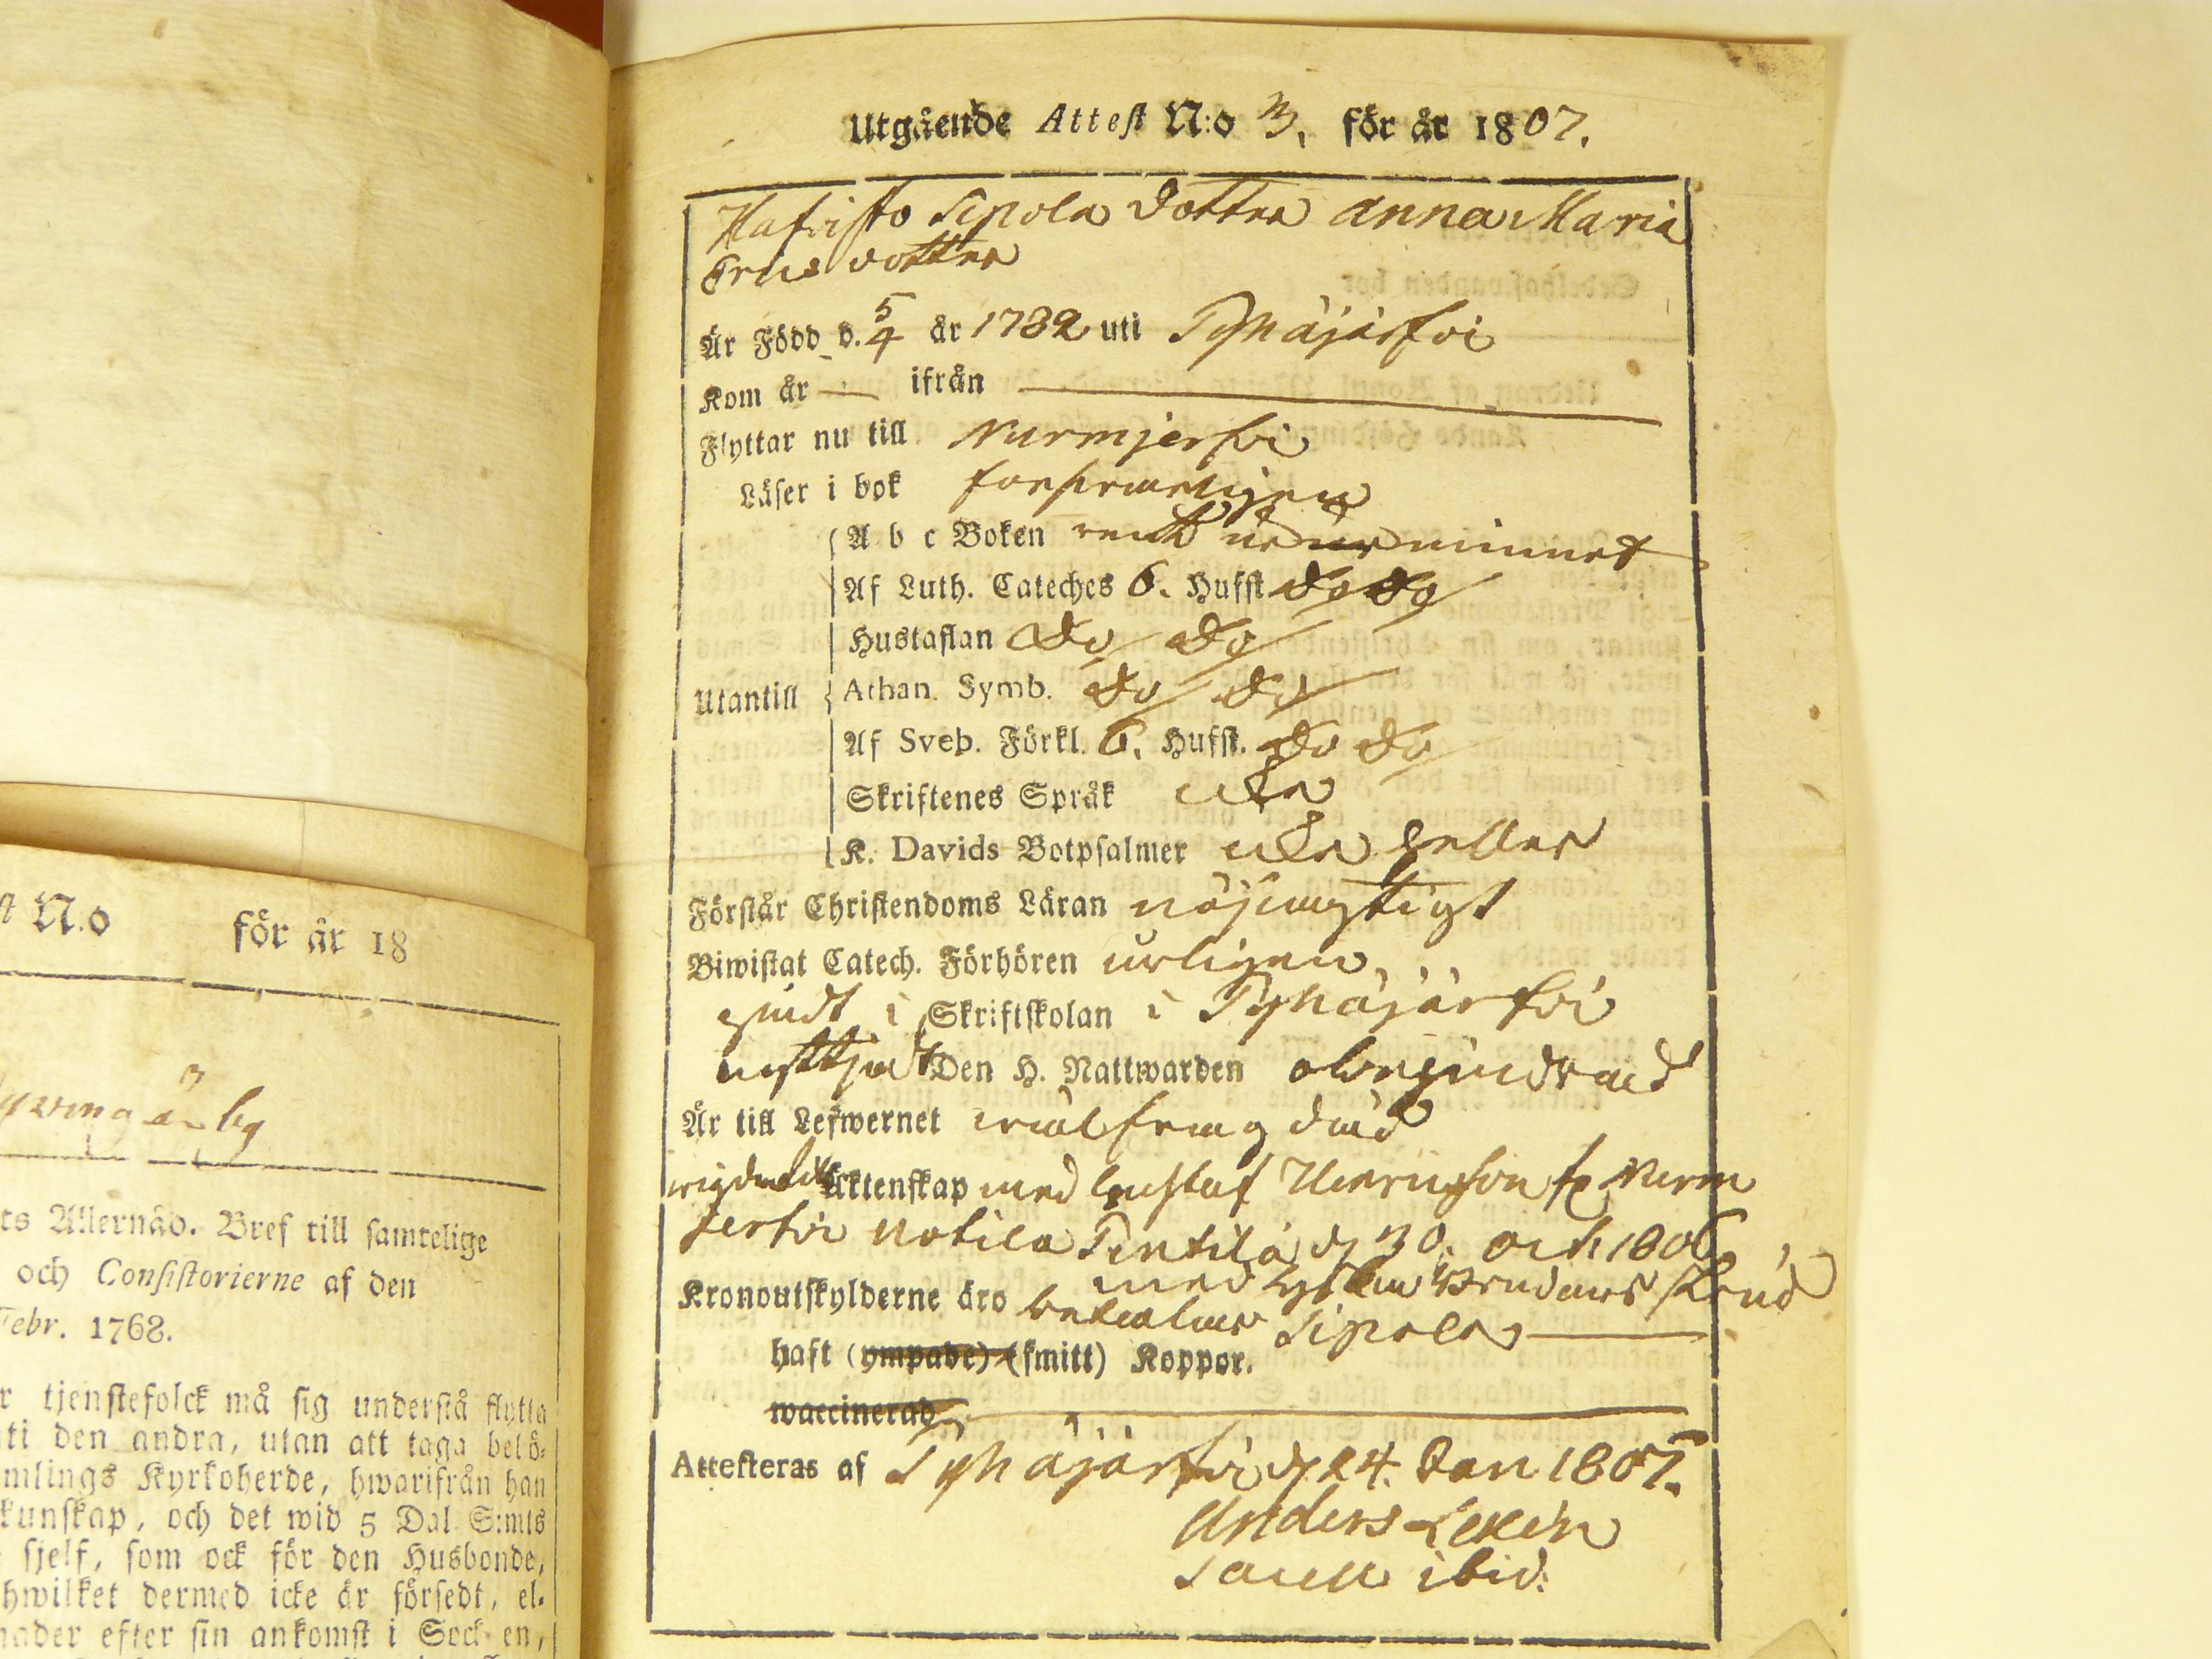 Utgående Attest N:o 3. för år 1807.
Sipola dotter Anna Maria
dotter
Är Född d. 5/4 år 1782 uti Pyhäjärfvi
Kom år — ifrån —
Flyttar nu till Nurmjerfvi
Läser i bok försvarligen
Utantill
A b c Boken rent ur minnet
Af Luth. Cateches 6. Hufst do do
Hustaflan do do
Athan. Symb. do do
Af Sveb. Förkl. 6. Hufst. do do
Skriftenes Språk icke
K. Davids Botpsalmer icke heller
Förstår Christendoms Läran nöjagtigt
Biwistat Catech. Förhören årligen
gådt i Skriftskolan i Pyhäjärfvi
nyttjat Den H. Nattwarden obehindrad
Är till Lefwernet wälfrägdad
wigd Äktenskap med Gustaf fr Nurm
jerfvi Notila Pentilä d 30. Oct 1806
med Brudens
Kronoutskylderne äro betalar Sipola —
haft (ympade) (smitt) Koppor.
waccinerad
Attesteras af Pyhäjärfvi d 24. Jan 1807.
Anders Lexen
Sacell ibid:
st N.o för år 18
ts Allernåd. Bref till samtelige
och Consistorierne af den
Febr. 1768.
r tjenstefolck må sig understå flytta
ti den andra, utan att taga behö-
mlings Kyrkoherde, hwarifrån han
kunskap, och det wid 5 Dal S:mts
sjelf, som ock för den Husbonde,
hwilket dermed icke är försedt, el-
nader efter sin ankomst i Sock en,